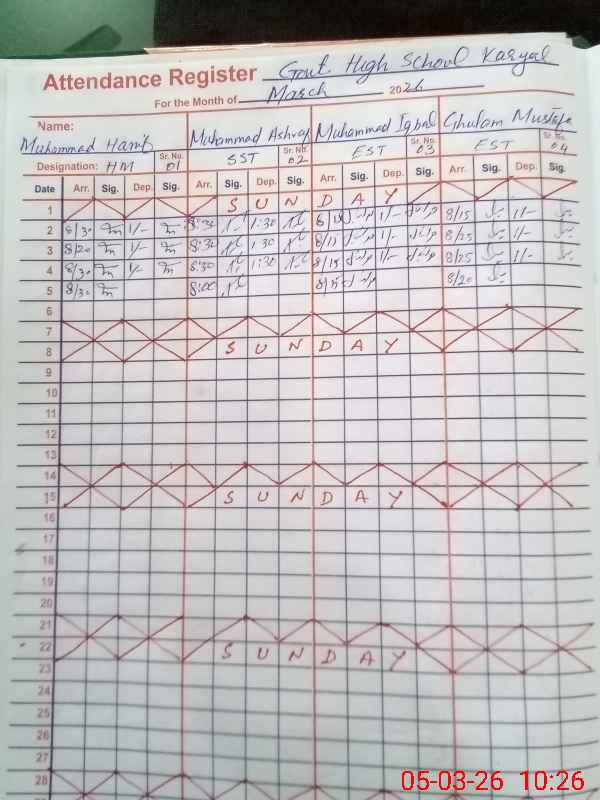 Attendance Register Govt High School Karyal
For the Month of March 2026
Name: Muhammad Hanif Muhammad Ashraf Muhammad Iqbal Ghulam Mustafa
Designation: HM Sr. No. 01 SST Sr. No. 02 EST Sr. No. 03 EST Sr. No. 04
Date Arr. Sig. Dep. Sig. Arr. Sig. Dep. Sig. Arr. Sig. Dep. Sig. Arr. Sig. Dep. Sig.
1 S U N D A Y
2 8/30 1/- 8:30 1:30 1/- 8/15 1/-
3 8/20 1/- 8:30 1:30 1/- 8/25 1/-
4 8/30 1/- 8:30 1:30 8/15 1/- 8/25 1/-
5 8/30 8:00 8/15 8/20
6
7
8 S U N D A Y
9
10
11
12
13
14
15 S U N D A Y
16
17
18
19
20
21
22 S U N D A Y
23
24
25
26
27
28
05-03-26 10:26